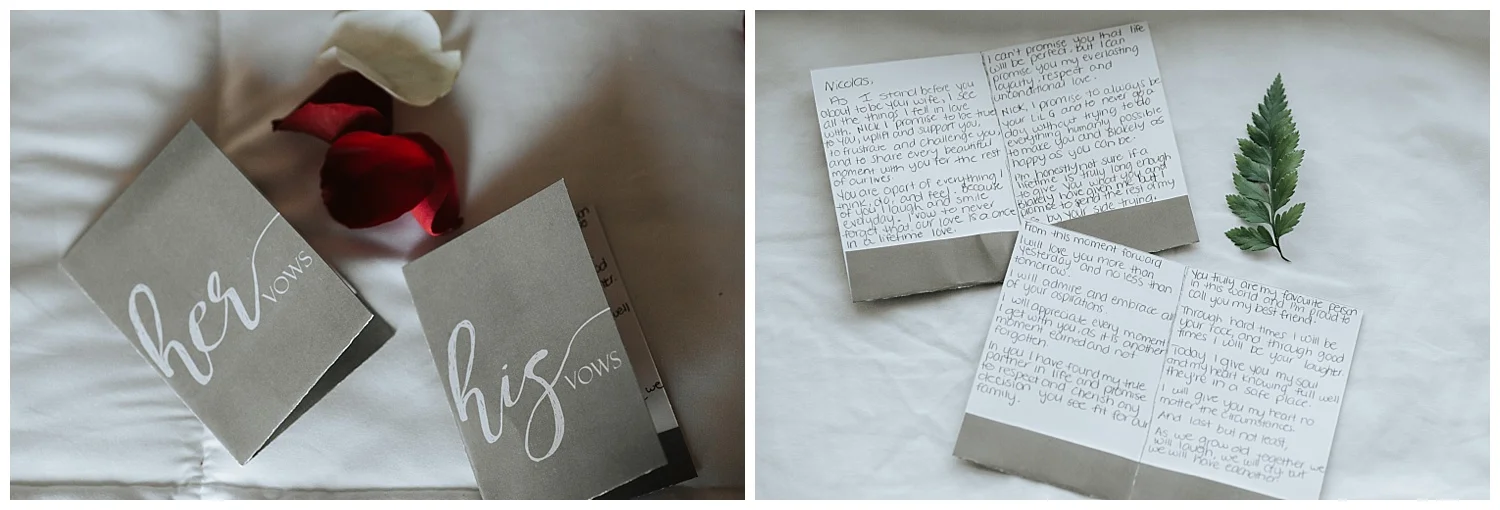 her
vows
his
vows
we
Nicolas,
As I stand before you
about to be your wife, I see
all the things I fell in love
with. Nick I promise to be true
to you, uplift and support you,
to frustrate and challenge you
and to share every beautiful
moment with you for the rest
of our lives.
You are apart of everything I
think, do, and feel. Because
of you I laugh and smile
everyday. I vow to never
forget that our love is a once
in a lifetime love.
I can't promise you that life
will be perfect, but I can
promise you my everlasting
loyalty, respect and
unconditional love.
Nick, I promise to always be
your Lil G and to never go a
day without trying to do
everything humanly possible
to make you and Blakely as
happy as you can be.
I'm honestly not sure if a
lifetime is truly long enough
to give you what you and
Blakely have given me but I
promise to spend the rest of my
by your side trying.
From this moment forward
I will love you more than
yesterday and no less than
tomorrow.
I will admire and embrace all
of your aspirations.
I will appreciate every moment
I get with you, as it is another
moment earned and not
forgotten.
In you I have found my true
partner in life and promise
to respect and cherish any
decision you see fit for our
family.
You truly are my favourite person
in this world and I'm proud to
call you my best friend.
Through hard times I will be
your rock, and through good
times I will be your laughter.
Today I give you my soul
and my heart knowing full well
they're in a safe place.
I will give you my heart no
matter the circumstances.
And last but not least,
As we grow old together we
will laugh, we will cry but
we will have eachother.